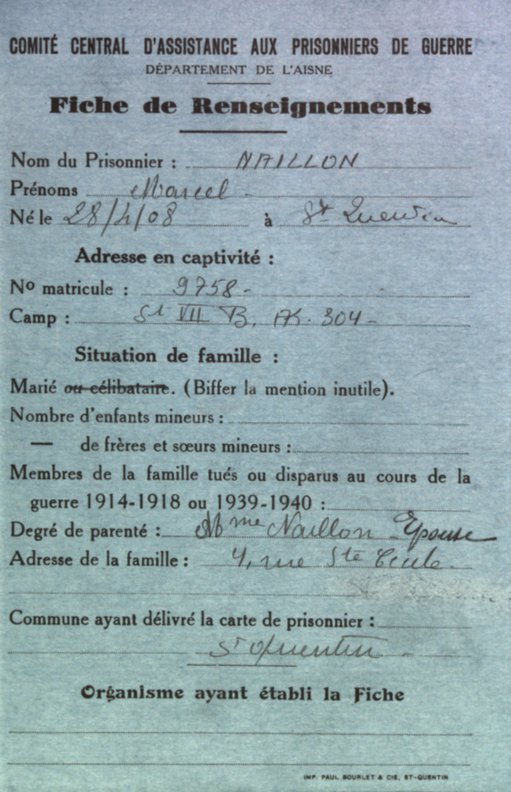 COMITÉ CENTRAL D'ASSISTANCE AUX PRISONNIERS DE GUERRE
DÉPARTEMENT DE L'AISNE
Fiche de Renseignements
Nom du Prisonnier : NAILLON
Prénoms Marcel
Né le 28/4/08 à St Quentin
Adresse en captivité :
No matricule : 9758
Camp : St VII B. AK. 304
Situation de famille :
Marié ou célibataire. (Biffer la mention inutile).
Nombre d'enfants mineurs :
— de frères et sœurs mineurs :
Membres de la famille tués ou disparus au cours de la
guerre 1914-1918 ou 1939-1940 :
Degré de parenté : Mme Naillon Epouse
Adresse de la famille : 4, rue Ste Cecile
Commune ayant délivré la carte de prisonnier :
St Quentin
Organisme ayant établi la Fiche
IMP. PAUL BOURLET & CIE, ST-QUENTIN